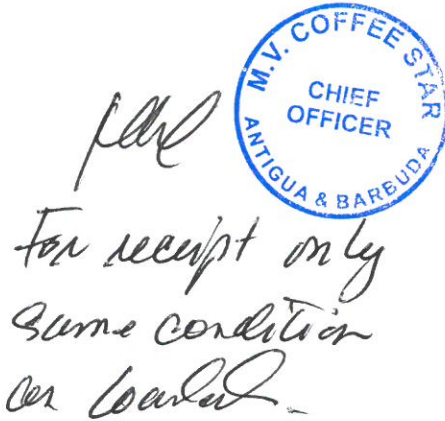 M.V. COFFEE STAR
CHIEF
OFFICER
ANTIGUA & BARBUDA
For receipt only
same condition
as loaded.